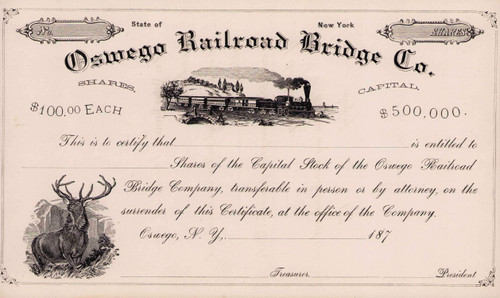 No.
State of New York
SHARES
Oswego Railroad Bridge Co.
SHARES,
CAPITAL,
$100.00 EACH
$500,000.
This is to certify that is entitled to
Shares of the Capital Stock of the Oswego Railroad
Bridge Company, transferable in person or by attorney, on the
surrender of this Certificate, at the office of the Company.
Oswego, N. Y., 187
Treasurer.
President